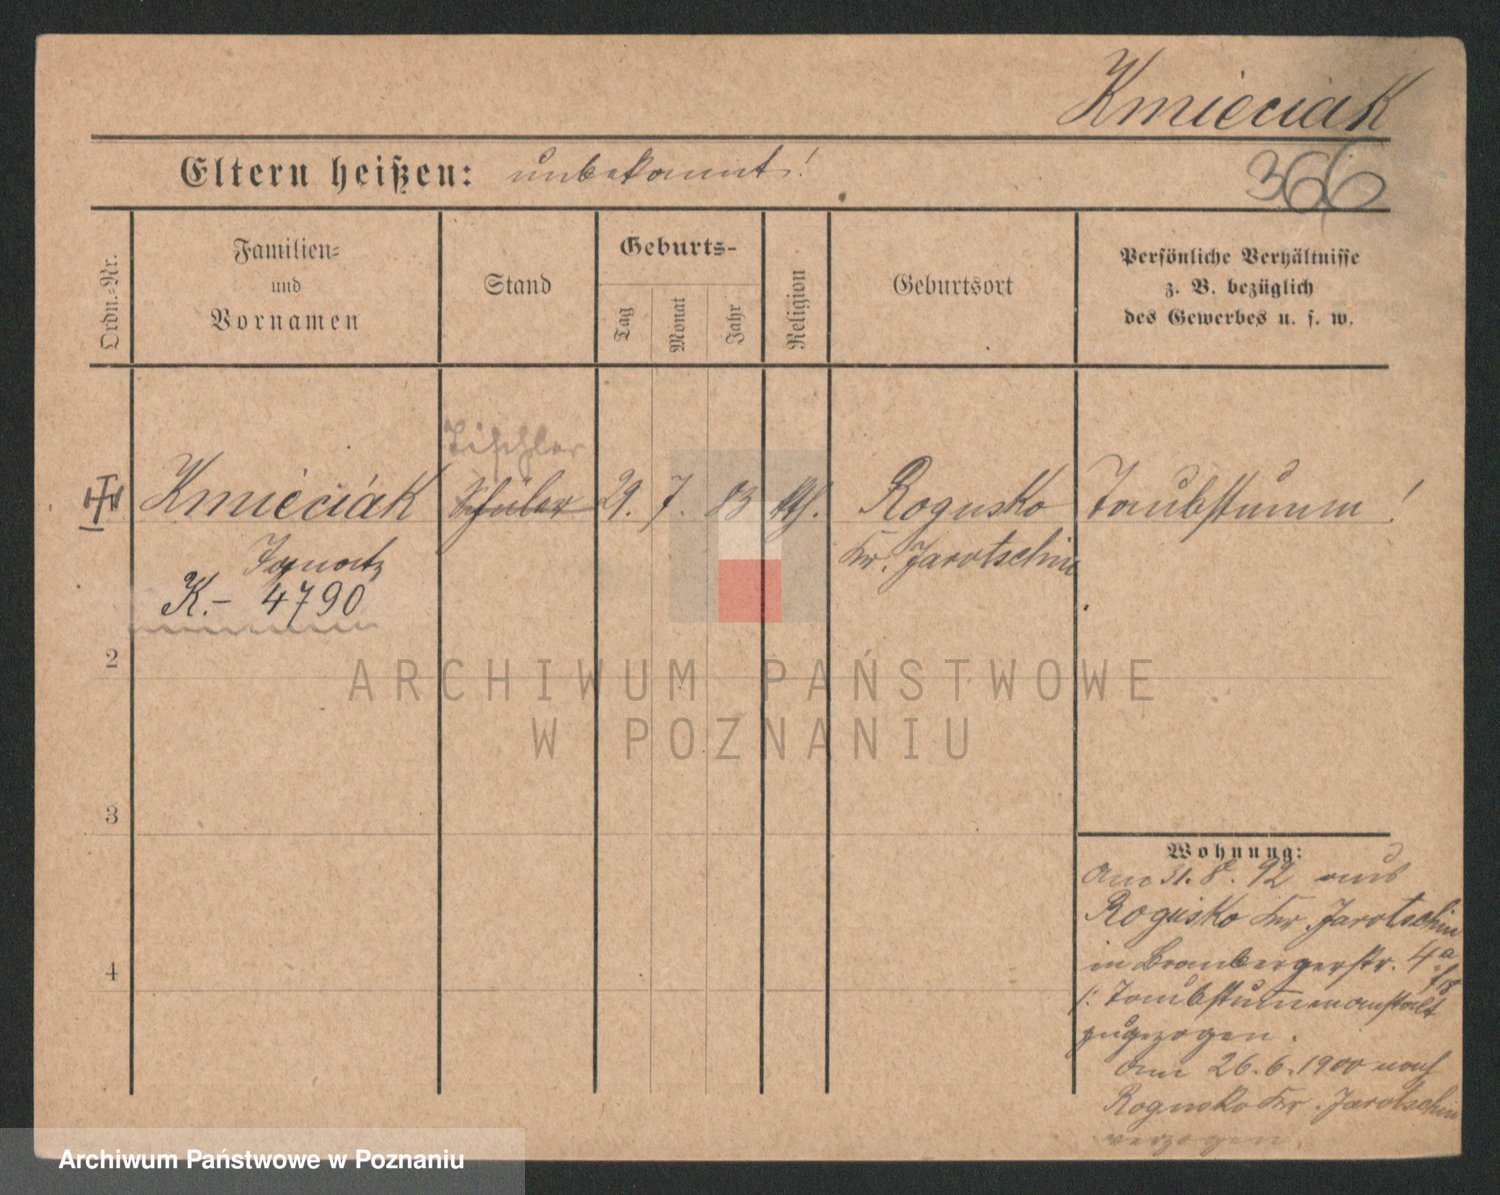 Kmieciak
Eltern heißen: unbekannt!
366
Ordn.-Nr.
Familien-
und
Vornamen
Stand
Geburts-
Tag
Monat
Jahr
Religion
Geburtsort
Persönliche Verhältnisse
z. B. bezüglich
des Gewerbes u. s. w.
Tischler
Kmieciak Schüler 29. 7. 83 kth. Rogusko Taubstumm!
Ignatz Kr. Jarotschin
K.- 4790
2
3
4
ARCHIWUM PAŃSTWOWE
W POZNANIU
Wohnung:
Am 31. 8. 92 aus
Rogusko Kr. Jarotschin
in Brombergerstr. 4a
/: Taubstummenanstalt
zugezogen.
Am 26.6.1900 nach
Rogusko Kr. Jarotschin
verzogen.
Archiwum Państwowe w Poznaniu